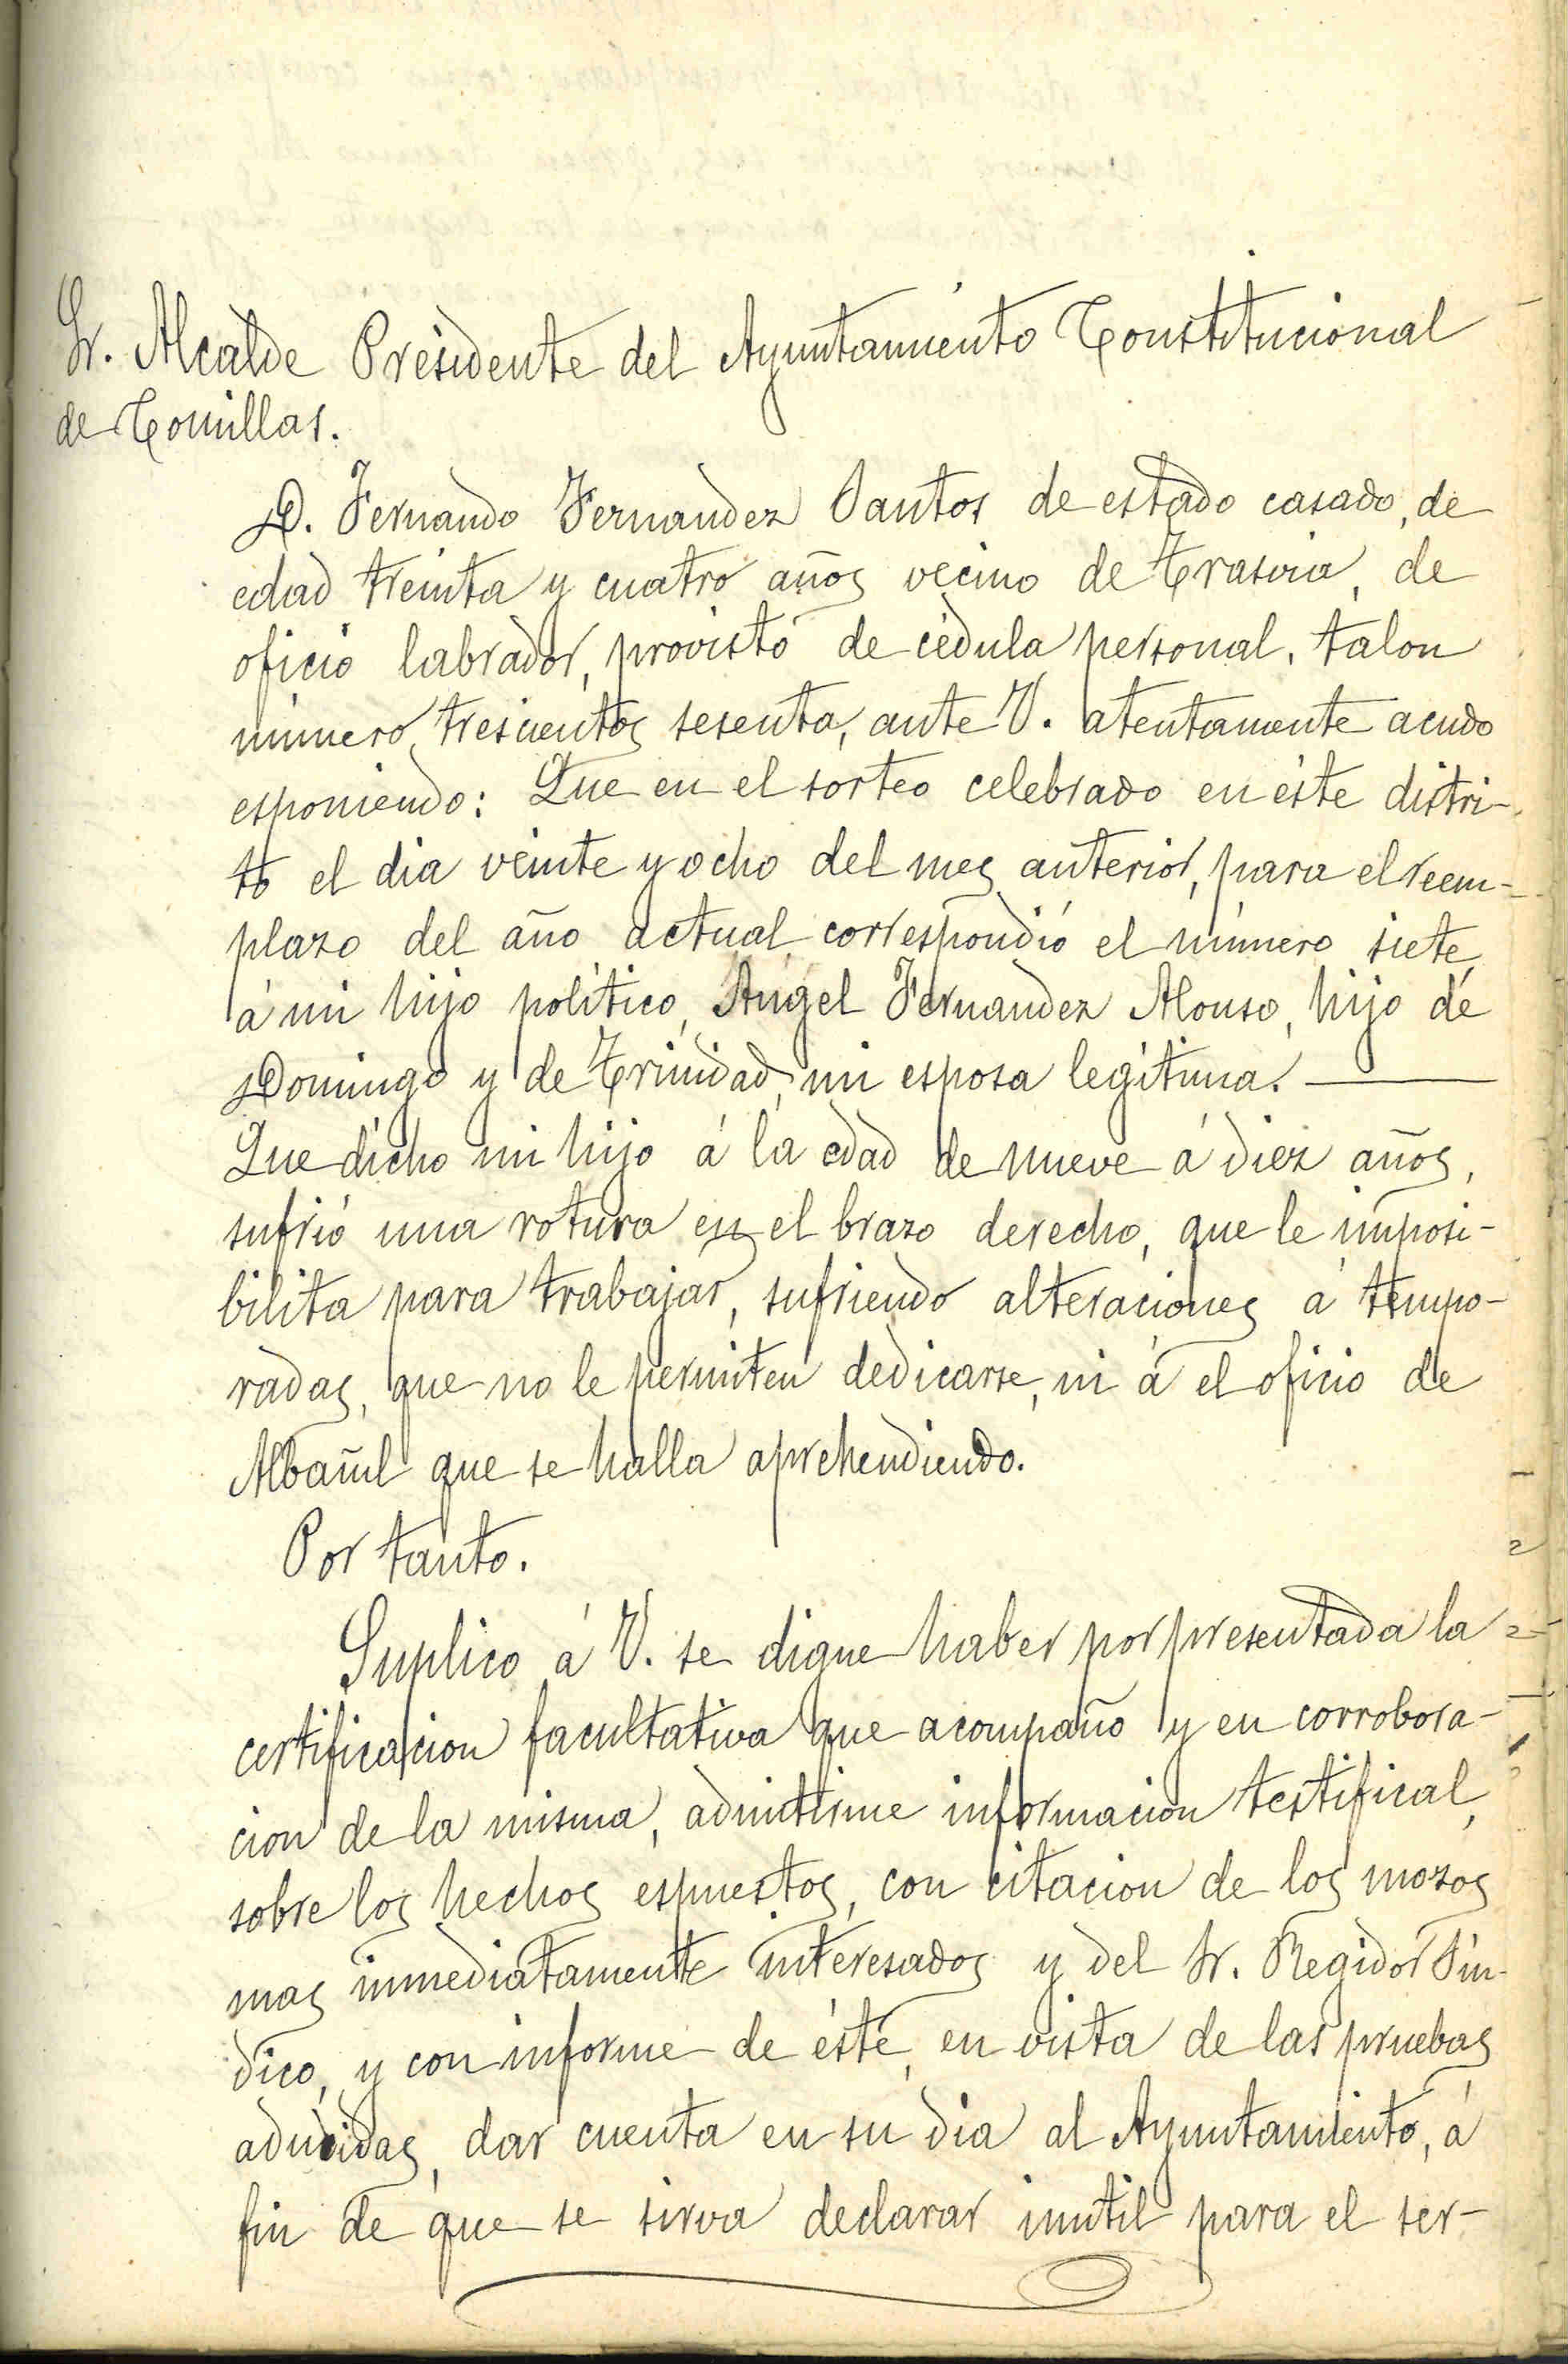 Sr. Alcalde Presidente del Ayuntamiento Constitucional
de Comillas.
D. Fernando Fernandez Santos de estado casado, de
edad treinta y cuatro años vecino de Trasvia, de
oficio labrador, provisto de cédula personal, talon
número, trescientos sesenta, ante V. atentamente acudo
esponiendo: Que en el sorteo celebrado en éste distri-
to el dia veinte y ocho del mes anterior, para el reem-
plazo del año actual correspondió el número siete
á mi hijo politico, Angel Fernandez Alonso, hijo de
Domingo y de Trinidad, mi esposa legitima.
Que dicho mi hijo á la edad de nueve á diez años,
sufrió una rotura en el brazo derecho, que le imposi-
bilita para trabajar, sufriendo alteraciones á tempo-
radas, que no le permiten dedicarse, ni á el oficio de
Albañil que se halla aprehendiendo.
Por tanto.
Suplico á V. se digne haber por presentada la
certificacion facultativa que acompaño y en corrobora-
cion de la misma, admitirme informacion testifical,
sobre los hechos espuestos, con citacion de los mozos
mas inmediatamente interesados y del Sr. Regidor Sin-
dico, y con informe de éste, en vista de las pruebas
aducidas, dar cuenta en su dia al Ayuntamiento, á
fin de que se sirva declarar inutil para el ser-